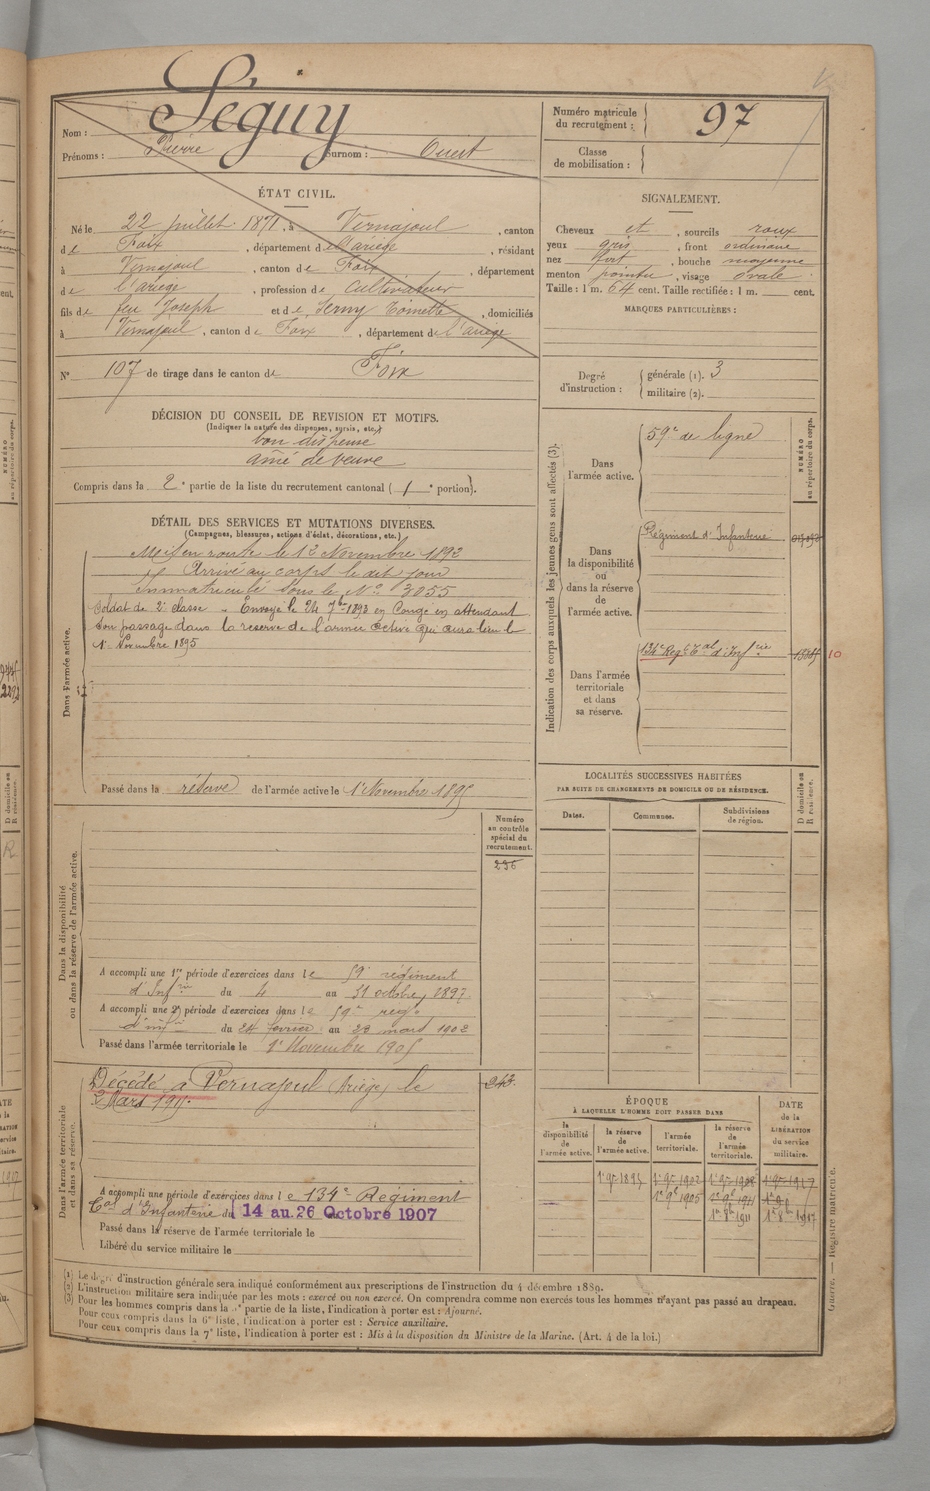 Nom : Séguy
Prénoms : Pierre Surnom : Ouest
Numéro matricule du recrutement : 97
Classe de mobilisation :
ÉTAT CIVIL.
Né le 22 juillet 1871, à Vernajoul, canton
de Foix, département de l'ariège, résidant
à Vernajoul, canton de Foix, département
de l'ariège, profession de Cultivateur
fils de feu Joseph et de Serny Toinette, domiciliés
à Vernajoul, canton de Foix, département de l'ariège
N° 107 de tirage dans le canton de Foix
SIGNALEMENT.
Cheveux et, sourcils roux
yeux gris, front ordinaire
nez fort, bouche moyenne
menton pointu, visage ovale
Taille : 1 m. 64 cent. Taille rectifiée : 1 m. cent.
MARQUES PARTICULIÈRES :
Degré d'instruction : générale (1). 3
militaire (2).
DÉCISION DU CONSEIL DE REVISION ET MOTIFS.
(Indiquer la nature des dispenses, sursis, etc.)
bon dispensé
ainé de veuve
Compris dans la 2e partie de la liste du recrutement cantonal (1e portion).
DÉTAIL DES SERVICES ET MUTATIONS DIVERSES.
(Campagnes, blessures, actions d'éclat, décorations, etc.)
Dans l'armée active.
Mis en route le 12 Novembre 1892
Arrivé au corps le dit jour
Immatriculé sous le N° 3055
Soldat de 2e classe - Envoyé le 24 7bre 1893 en Congé en attendant
son passage dans la réserve de l'armée active qui aura lieu le
1er Novembre 1895
Passé dans la réserve de l'armée active le 1er Novembre 1895
Indication des corps auxquels les jeunes gens sont affectés (3).
NUMÉRO au répertoire du corps.
Dans l'armée active.
59e de ligne
Dans la disponibilité ou dans la réserve de l'armée active.
Régiment d'Infanterie
Dans l'armée territoriale et dans sa réserve.
134e Regt Tal d'Infrie
10
LOCALITÉS SUCCESSIVES HABITÉES
PAR SUITE DE CHANGEMENTS DE DOMICILE OU DE RÉSIDENCE.
Dates. Communes. Subdivisions de région. D domicile ou R résidence.
Dans la disponibilité ou dans la réserve de l'armée active.
Numéro au contrôle spécial du recrutement.
236
A accompli une 1re période d'exercices dans le 59e régiment
d'Infrie du 4 au 31 octobre 1897
A accompli une 2e période d'exercices dans le 59e regt
d'infie du 24 février au 23 mars 1902
Passé dans l'armée territoriale le 1er Novembre 1905
Dans l'armée territoriale et dans sa réserve.
Décédé à Vernajoul (Ariège) le
2 Mars 1911.
243
A accompli une période d'exercices dans le 134e Régiment
Tal d'Infanterie du 14 au 26 Octobre 1907
Passé dans la réserve de l'armée territoriale le
Libéré du service militaire le
ÉPOQUE
À LAQUELLE L'HOMME DOIT PASSER DANS
DATE de la LIBÉRATION du service militaire.
la disponibilité de l'armée active. la réserve de l'armée active. l'armée territoriale. la réserve de l'armée territoriale.
1er 9re 1895 1er 9re 1902 1er 9re 1908 1er 9re 1917
1er 9re 1905 1er 9re 1911
1er 8re 1911 1er 8re 1917
(1) Le degré d'instruction générale sera indiqué conformément aux prescriptions de l'instruction du 4 décembre 1889.
(2) L'instruction militaire sera indiquée par les mots : exercé ou non exercé. On comprendra comme non exercés tous les hommes n'ayant pas passé au drapeau.
(3) Pour les hommes compris dans la partie de la liste, l'indication à porter est : Ajourné.
Pour ceux compris dans la 6e liste, l'indication à porter est : Service auxiliaire.
Pour ceux compris dans la 7e liste, l'indication à porter est : Mis à la disposition du Ministre de la Marine. (Art. 4 de la loi.)
Guerre. — Registre matricule.